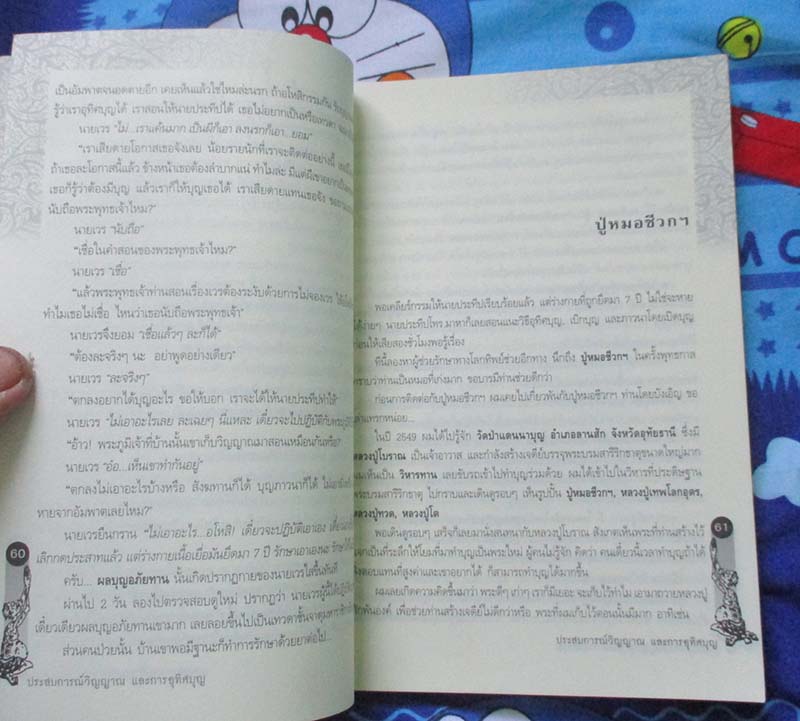 เป็นอัมพาตจนอดตายอีก เคยเห็นแล้วใช่ไหมล่ะนรก ถ้าอโหสิกรรมกัน
รู้ว่าเราอุทิศบุญได้ เราสอนให้นายประทีปได้ เธอไม่อยากเป็นหรือเทวดา
นายเวร "ไม่...เราแค้นมาก เป็นผีก็เอา ลงนรกก็เอา...ยอม"
"เราเสียดายโอกาสเธอจังเลย น้อยรายนักที่เราจะติดต่ออย่างนี้
ถ้าเธอละโอกาสนี้แล้ว ข้างหน้าเธอต้องลำบากแน่ ทำไมล่ะ มีแต่ผีเขาอยากเป็น
เธอก็รู้ว่าต้องมีบุญ แล้วเราก็ให้บุญเธอได้ เราเสียดายแทนเธอจัง
นับถือพระพุทธเจ้าไหม?"
นายเวร "นับถือ"
"เชื่อในคำสอนของพระพุทธเจ้าไหม?"
นายเวร "เชื่อ"
"แล้วพระพุทธเจ้าท่านสอนเรื่องเวรต้องระงับด้วยการไม่จองเวร
ทำไมเธอไม่เชื่อ ไหนว่าเธอนับถือพระพุทธเจ้า"
นายเวรจึงยอม "เชื่อแล้วๆ ละก็ได้"
"ต้องละจริงๆ นะ อย่าพูดอย่างเดียว"
นายเวร "ละจริงๆ"
"ตกลงอยากได้บุญอะไร ขอให้บอก เราจะได้ให้นายประทีปทำให้"
นายเวร "ไม่เอาอะไรเลย ละเฉยๆ นี่แหละ เดี๋ยวจะไปปฏิบัติกับพระภูมิ
"อ้าว! พระภูมิเจ้าที่บ้านนั้นเขาเก็บวิญญาณมาสอนเหมือนกันหรือ?
นายเวร "อ๋อ...เห็นเขาทำกันอยู่"
"ตกลงไม่เอาอะไรบ้างหรือ สังฆทานก็ได้ บุญภาวนาก็ได้
หายจากอัมพาตเลยไหม?"
นายเวรยืนกราน "ไม่เอาอะไร...อโหสิ! เดี๋ยวจะปฏิบัติเอาเอง
เลิกกดประสาทแล้ว แต่ร่างกายเนื้อเยื่อมันยึดมา 7 ปี รักษาเอาเองนะ
ครับ... ผลบุญอภัยทาน นั้นเกิดปรากฏกายของนายเวรใสขึ้นทันที
ผ่านไป 2 วัน ลองไปตรวจสอบดูใหม่ ปรากฏว่า นายเวรผู้นี้
เดี๋ยวเดียวผลบุญอภัยทานเขามาก เลยลอยขึ้นไปเป็นเทวดาชั้นจาตุมหาราชิกา
ส่วนคนป่วยนั้น บ้านเขาพอมีฐานะก็ทำการรักษาด้วยยาต่อไป...
60
ประสบการณ์วิญญาณ และการอุทิศบุญ
ปู่หมอชีวกฯ
พอเคลียร์กรรมให้นายประทีปเรียบร้อยแล้ว แต่ร่างกายที่ถูกยึดมา 7 ปี ไม่ใช่จะหาย
ได้ง่ายๆ นายประทีปโทร.มาหาก็เลยสอนแนะวิธีอุทิศบุญ, เบิกบุญ และภาวนาโดยเปิดบุญ
ก่อนให้เสียสองชั่วโมงพอรู้เรื่อง
ทีนี้ลองหาผู้ช่วยรักษาทางโลกทิพย์ช่วยอีกทาง นึกถึง ปู่หมอชีวกฯ ในครั้งพุทธกาล
ทราบว่าท่านเป็นหมอที่เก่งมาก ขอบารมีท่านช่วยดีกว่า
ก่อนการติดต่อกับปู่หมอชีวกฯ ผมเคยไปเกี่ยวพันกับปู่หมอชีวกฯ ท่านโดยบังเอิญ ขอ
เล่าแทรกหน่อย...
ในปี 2549 ผมได้ไปรู้จัก วัดป่าแดนนาบุญ อำเภอลานสัก จังหวัดอุทัยธานี ซึ่งมี
หลวงปู่โบราณ เป็นเจ้าอาวาส และกำลังสร้างเจดีย์บรรจุพระบรมสารีริกธาตุขนาดใหญ่มาก
ผมเห็นเป็น วิหารทาน เลยขับรถเข้าไปทำบุญร่วมด้วย ผมได้เข้าไปในวิหารที่ประดิษฐาน
พระบรมสารีริกธาตุ ไปกราบและเดินดูรอบๆ เห็นรูปปั้น ปู่หมอชีวกฯ, หลวงปู่เทพโลกอุดร,
หลวงปู่ทวด, หลวงปู่โต
พอเดินดูรอบๆ เสร็จก็เลยมานั่งสนทนากับหลวงปู่โบราณ สังเกตเห็นพระที่ท่านสร้างไว้
แจกเป็นที่ระลึกให้โยมที่มาทำบุญเป็นพระใหม่ ผู้คนไม่รู้จัก คิดว่า คนเดี๋ยวนี้เวลาทำบุญถ้าได้
ของตอบแทนที่สูงค่าและเขาอยากได้ ก็สามารถทำบุญได้มากขึ้น
ผมเลยเกิดความคิดขึ้นมาว่า พระดีๆ เก่าๆ เราก็มีเยอะ จะเก็บไว้ทำไม เอามาถวายหลวงปู่
พันองค์ เพื่อช่วยท่านสร้างเจดีย์ไม่ดีกว่าหรือ พระที่ผมเก็บไว้ตอนนั้นมีมาก อาทิเช่น
61
ประสบการณ์วิญญาณ และการอุทิศบุญ